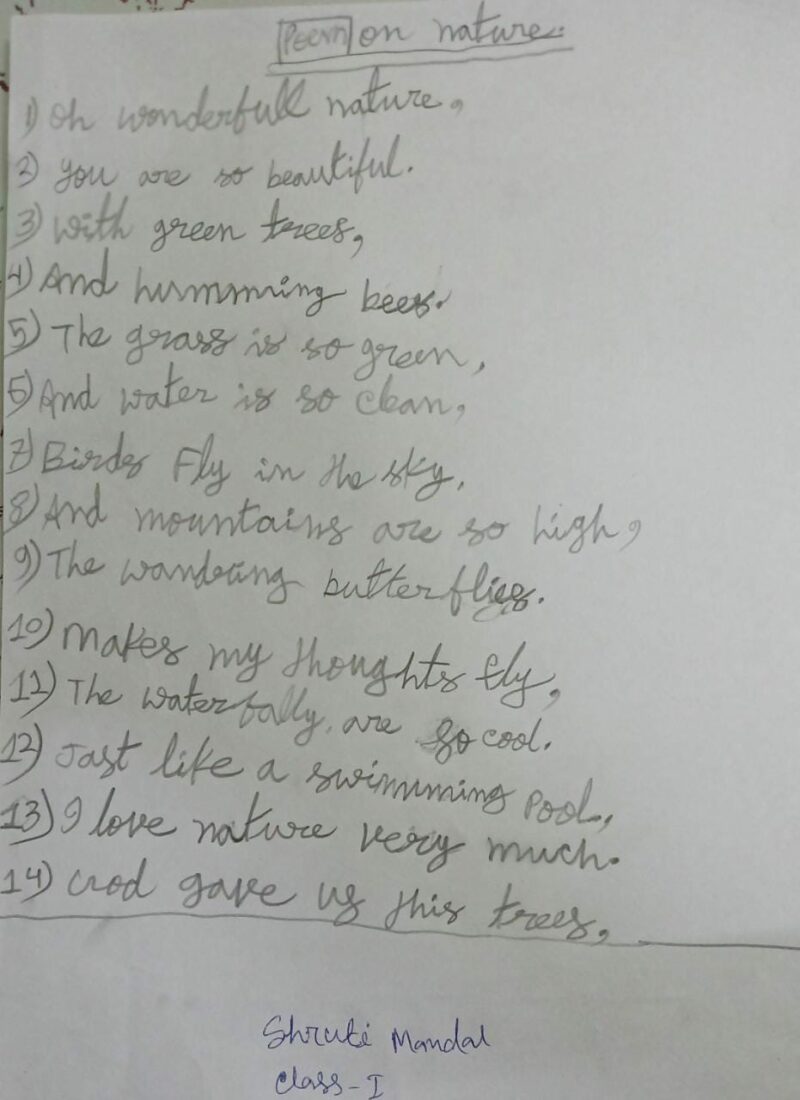 Poem on nature.
1) Oh wonderfull nature,
2) you are so beautiful.
3) with green trees,
4) And hummming bees.
5) The grass is so green,
6) And water is so clean,
7) Birds Fly in the sky,
8) And mountains are so high,
9) The wandering butterflies.
10) Makes my thoughts fly,
11) The waterfally are so cool.
12) Jast like a swimmming pool,
13) I love nature very much.
14) God gave us this trees,
Shruti Mandal
Class-I